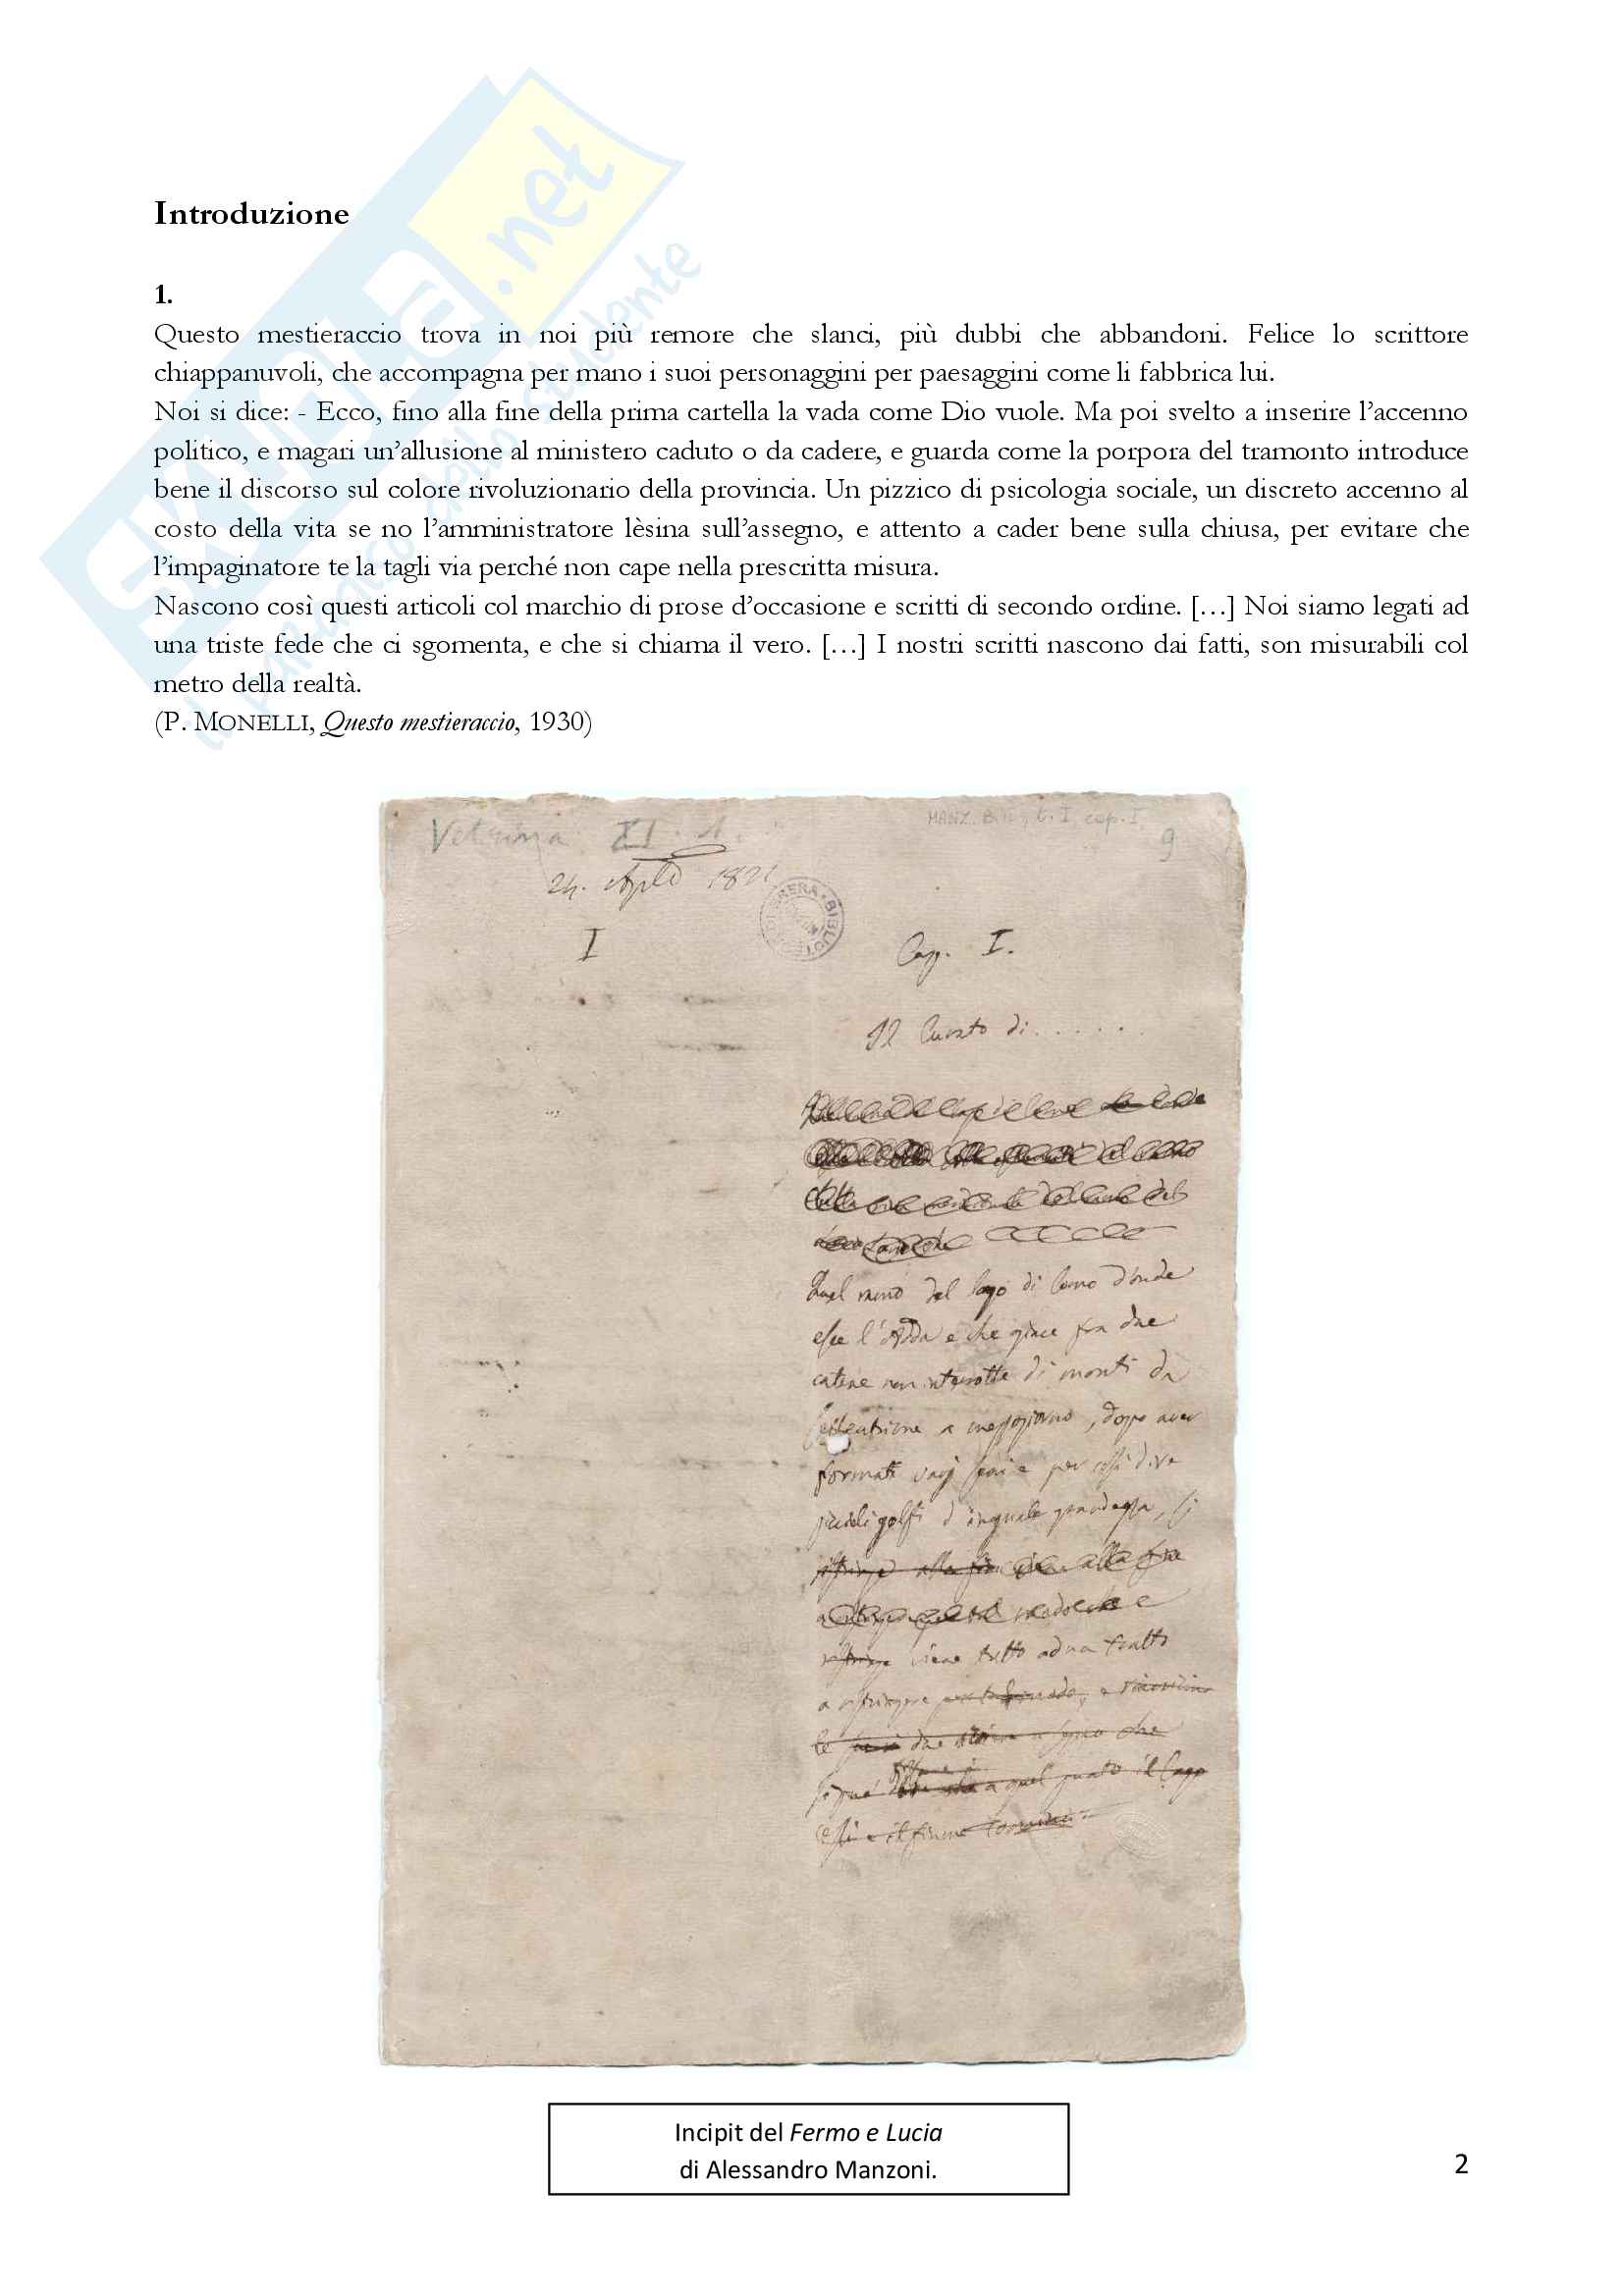 Introduzione
1.
Questo mestieraccio trova in noi più remore che slanci, più dubbi che abbandoni. Felice lo scrittore
chiappanuvoli, che accompagna per mano i suoi personaggini per paesaggini come li fabbrica lui.
Noi si dice: - Ecco, fino alla fine della prima cartella la vada come Dio vuole. Ma poi svelto a inserire l’accenno
politico, e magari un’allusione al ministero caduto o da cadere, e guarda come la porpora del tramonto introduce
bene il discorso sul colore rivoluzionario della provincia. Un pizzico di psicologia sociale, un discreto accenno al
costo della vita se no l’amministratore lèsina sull’assegno, e attento a cader bene sulla chiusa, per evitare che
l’impaginatore te la tagli via perché non cape nella prescritta misura.
Nascono così questi articoli col marchio di prose d’occasione e scritti di secondo ordine. […] Noi siamo legati ad
una triste fede che ci sgomenta, e che si chiama il vero. […] I nostri scritti nascono dai fatti, son misurabili col
metro della realtà.
(P. MONELLI, Questo mestieraccio, 1930)
skuola.net
il paradiso dello studente
MANZ. B. II, t. I, cap. I
9
24. Aple 1821
I
Cap. I.
Il Curato di . . . . . .
Quel ramo del lago di Como donde
esce l'Adda e che giace fra due
catene non interrotte di monti da
settentrione a mezzogiorno, dopo aver
formati varj seni e per così dire
piccioli golfi d'ineguale grandezza, si
viene tutto ad un tratto
a ristringere
Incipit del Fermo e Lucia
di Alessandro Manzoni.
2